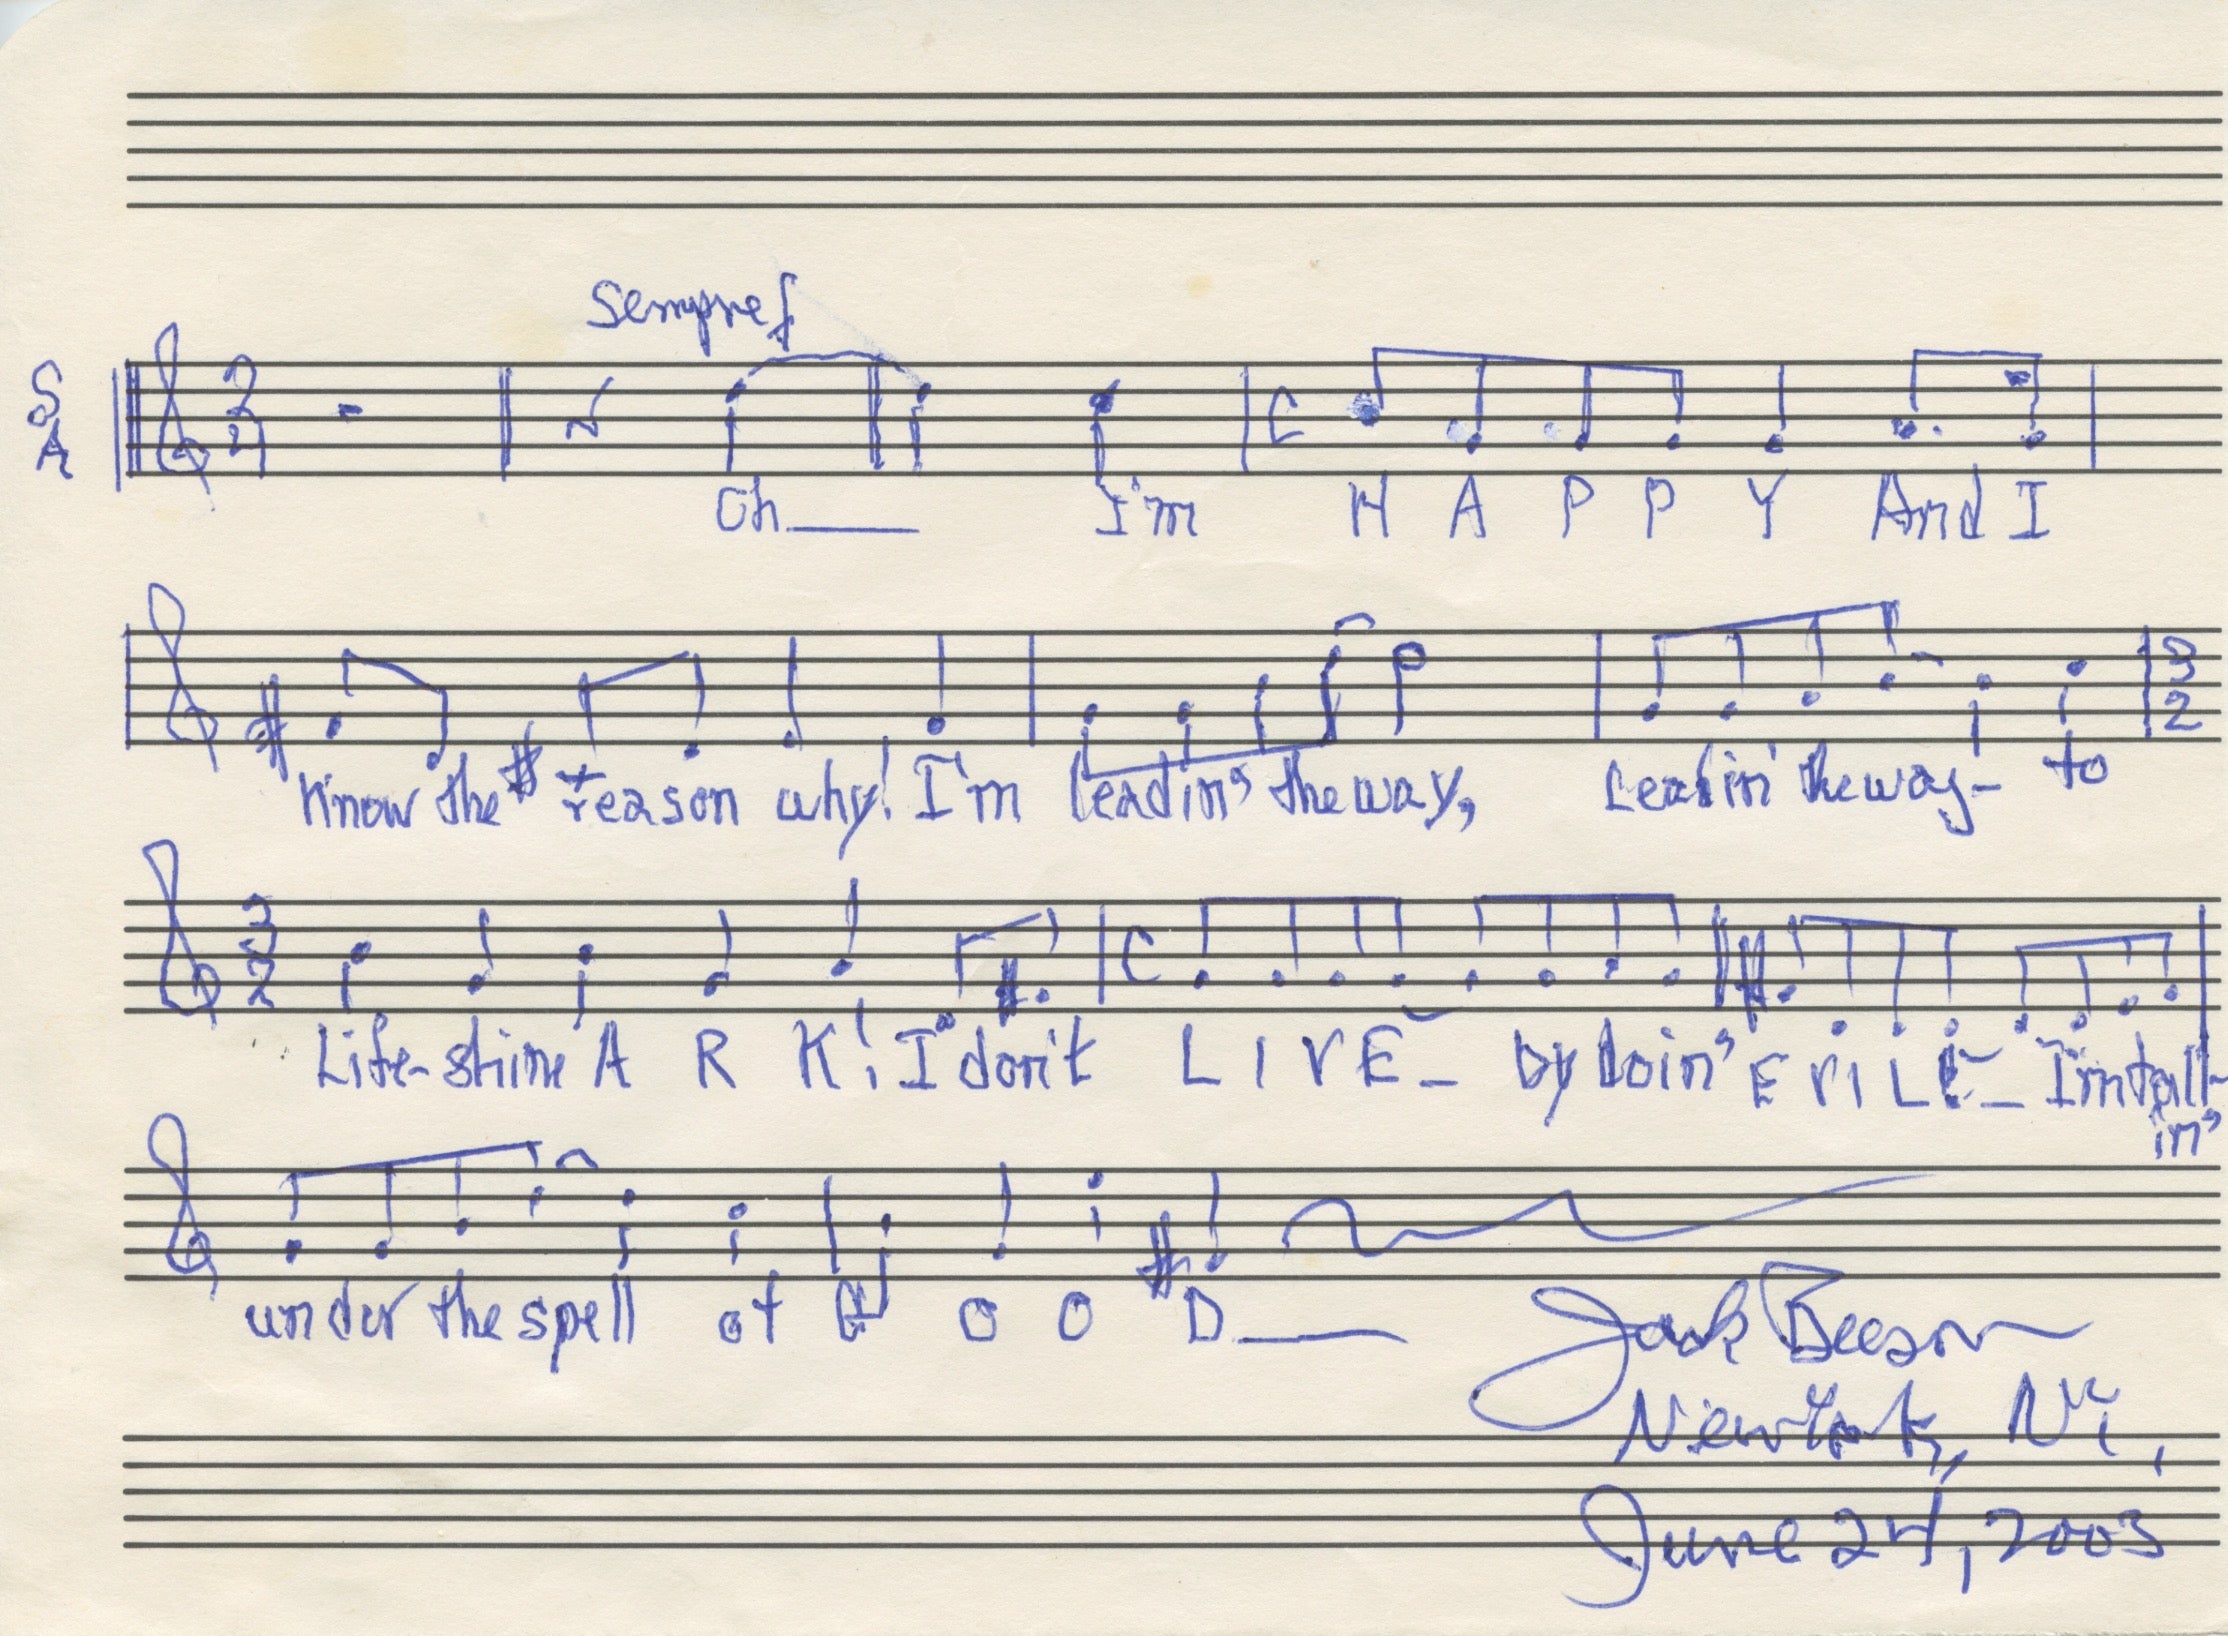 Sempre f
S
A
3
2
Oh___ I'm C H A P P Y And I
Know the reason why! I'm leadin' the way, Leadin' the way- to
3
2
3
2
C
Life-shine A R K! I don't L I V E_ by doin' E V I L_ I'm fall-
in'
under the spell of G O O D___
Jack Beeson
New York, NY,
June 24, 2003